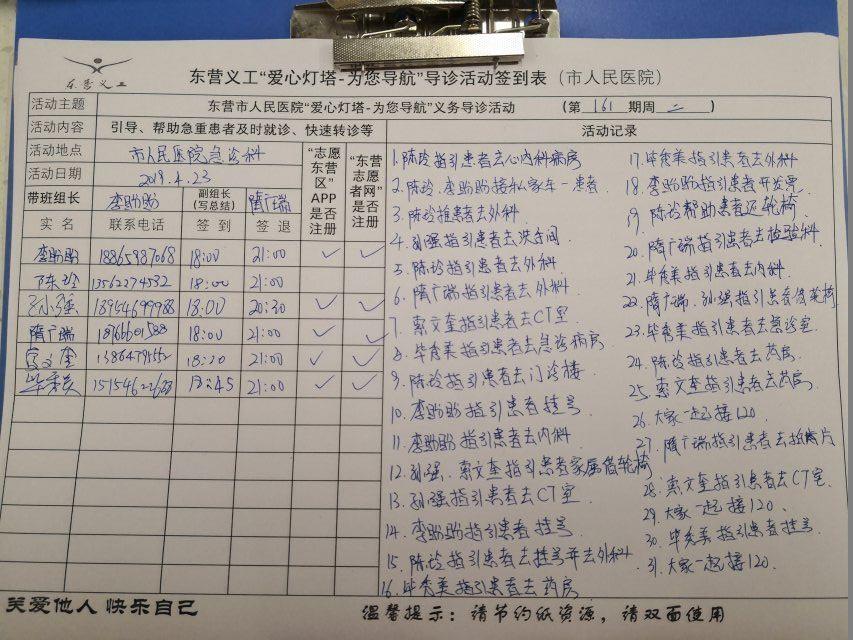 东营义工
东营义工“爱心灯塔-为您导航”导诊活动签到表（市人民医院）
活动主题 东营市人民医院“爱心灯塔-为您导航”义务导诊活动 （第 161 期周 二 ）
活动内容 引导、帮助急重患者及时就诊、快速转诊等
活动地点 市人民医院急诊科
活动日期 2019.4.23
带班组长 李盼盼 副组长（写总结） 隋广瑞
“志愿东营区”APP是否注册
“东营志愿者网”是否注册
实名 联系电话 签到 签退
李盼盼 18865987068 18:00 21:00 ✓ ✓
陈玲 13562274532 18:00 21:00
孙强 18954699988 18:00 20:30 ✓ ✓
隋广瑞 18:00 21:00 ✓ ✓
索文奎 18:20 21:00 ✓ ✓
毕秀美 18:45 21:00 ✓ ✓
活动记录
1. 陈玲指引患者去心内科病房
2. 陈玲.李盼盼接私家车一患者.
3. 陈玲推患者去外科.
4. 孙强指引患者去洗手间.
5. 陈玲指引患者去外科.
6. 隋广瑞指引患者去外科.
7. 索文奎指引患者去CT室.
8. 毕秀美指引患者去急诊病房
9. 陈玲指引患者去门诊楼.
10. 李盼盼指引患者挂号.
11. 李盼盼指引患者去内科.
12. 孙强. 索文奎指引患者家属借轮椅
13. 孙强指引患者去CT室.
14. 李盼盼指引患者挂号
15. 陈玲指引患者去挂号并去外科.
16. 毕秀美指引患者去药房
17. 毕秀美指引患者去外科
18. 李盼盼指引患者开发票.
19. 陈玲帮助患者还轮椅.
20. 隋广瑞指引患者去检验科
21. 毕秀美指引患者去内科.
22. 隋广瑞. 孙强指引患者借轮椅
23. 毕秀美指引患者去急诊室.
24. 陈玲指引患者去药房.
25. 索文奎指引患者去药房.
26. 大家一起接120.
27. 隋广瑞指引患者去拍片
28. 索文奎指引患者去CT室.
29. 大家一起接120.
30. 毕秀美指引患者挂号.
31. 大家一起接120.
关爱他人 快乐自己
温馨提示：请节约纸资源，请双面使用